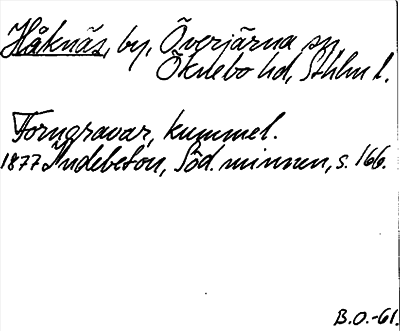 Håknäs, by, Överjärna sn
Öknebo hd, Sthlm l.
Forngravar, kummel.
1877 Indebetou, Söd. minnen, s. 166.
B.O.-61.